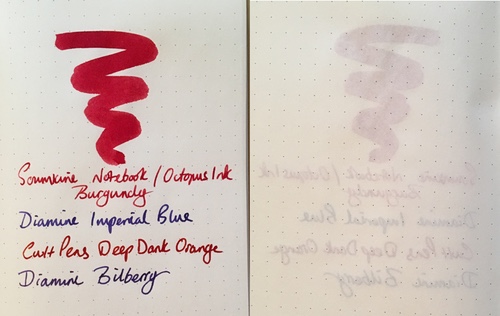 Soumkine Notebook / Octopus Ink
Burgundy
Diamine Imperial Blue
Cult Pens Deep Dark Orange
Diamine Bilberry